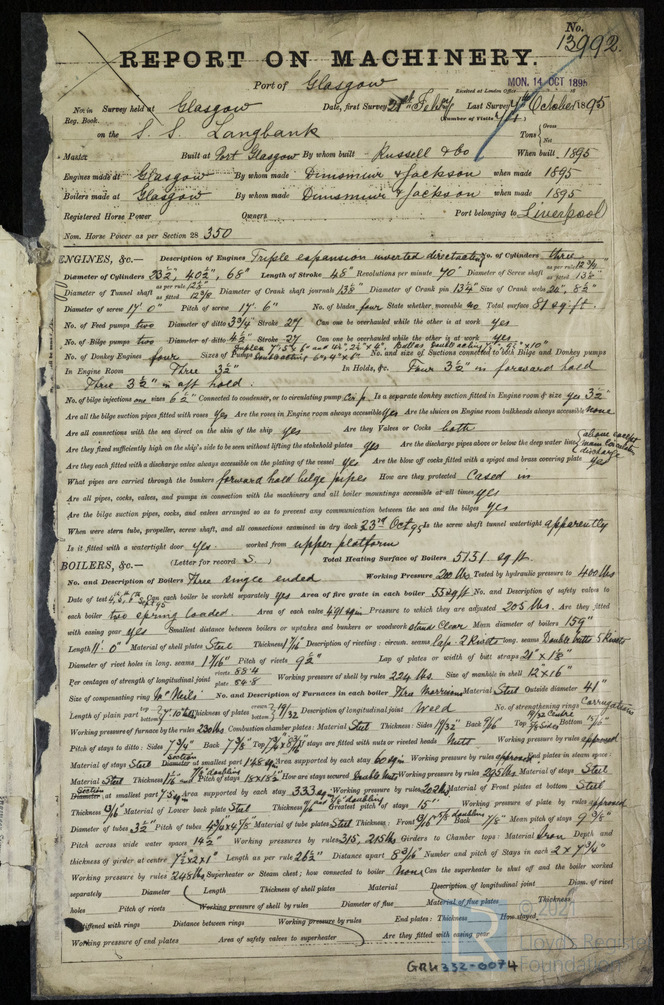 No.
13992.
REPORT ON MACHINERY.
Port of Glasgow
Received at London Office MON. 14 OCT 1895
No. in Survey held at Glasgow Date, first Survey 21st Feby Last Survey 4th October 1895
Reg. Book. (Number of Visits)
on the S. S. Langbank Tons { Gross
Net
Master Built at Port Glasgow By whom built Russell & Co When built 1895
Engines made at Glasgow By whom made Dunsmuir & Jackson when made 1895
Boilers made at Glasgow By whom made Dunsmuir & Jackson when made 1895
Registered Horse Power Owners Port belonging to Liverpool
Nom. Horse Power as per Section 28 350
ENGINES, &c.— Description of Engines Triple expansion inverted direct acting No. of Cylinders three
Diameter of Cylinders 23½", 40½", 68" Length of Stroke 48" Revolutions per minute 70 Diameter of Screw shaft as per rule as fitted 13½"
Diameter of Tunnel shaft as per rule as fitted Diameter of Crank shaft journals 13½" Diameter of Crank pin 13¼" Size of Crank webs
Diameter of screw 17' 0" Pitch of screw 17' 6" No. of blades four State whether moveable no Total surface 81 sq. ft.
No. of Feed pumps two Diameter of ditto 3¾ Stroke 27 Can one be overhauled while the other is at work yes
No. of Bilge pumps two Diameter of ditto 4½ Stroke 27 Can one be overhauled while the other is at work yes
No. of Donkey Engines four Sizes of Pumps No. and size of Suctions connected to both Bilge and Donkey pumps
In Engine Room Three 3½" In Holds, &c. Four 3½" in forward hold
Three 3½" in aft hold.
No. of bilge injections one sizes 6½" Connected to condenser, or to circulating pump Cir. p. Is a separate donkey suction fitted in Engine room & size yes 3½"
Are all the bilge suction pipes fitted with roses yes Are the roses in Engine room always accessible yes Are the sluices on Engine room bulkheads always accessible none
Are all connections with the sea direct on the skin of the ship yes Are they Valves or Cocks both
Are they fixed sufficiently high on the ship's side to be seen without lifting the stokehold plates yes Are the discharge pipes above or below the deep water line above except main circulating discharge
Are they each fitted with a discharge valve always accessible on the plating of the vessel yes Are the blow off cocks fitted with a spigot and brass covering plate yes
What pipes are carried through the bunkers forward hold bilge pipes How are they protected Cased in
Are all pipes, cocks, valves, and pumps in connection with the machinery and all boiler mountings accessible at all times yes
Are the bilge suction pipes, cocks, and valves arranged so as to prevent any communication between the sea and the bilges yes
When were stern tube, propeller, screw shaft, and all connections examined in dry dock 23rd Oct 95 Is the screw shaft tunnel watertight apparently
Is it fitted with a watertight door yes. worked from upper platform
BOILERS, &c.— (Letter for record S.) Total Heating Surface of Boilers 5131 sq. ft.
No. and Description of Boilers Three single ended Working Pressure 200 lbs Tested by hydraulic pressure to 400 lbs
Date of test Can each boiler be worked separately yes Area of fire grate in each boiler 55 sq ft No. and Description of safety valves to
each boiler two spring loaded. Area of each valve Pressure to which they are adjusted 205 lbs. Are they fitted
with easing gear yes Smallest distance between boilers or uptakes and bunkers or woodwork Mean diameter of boilers 159"
Length 11' 0" Material of shell plates Steel Thickness 1 7/16 Description of riveting: circum. seams lap 2 Rivets long. seams Double butts 5 Rivets
Diameter of rivet holes in long. seams 1 7/16" Pitch of rivets Lap of plates or width of butt straps 21" x 18"
Per centages of strength of longitudinal joint rivets 88.4 plate 84.8 Working pressure of shell by rules 224 lbs. Size of manhole in shell 12" x 16"
Size of compensating ring McNeils No. and Description of Furnaces in each boiler Thro Morrisons Material Steel Outside diameter 41"
Length of plain part top bottom Thickness of plates crown bottom 19/32 Description of longitudinal joint Weld No. of strengthening rings Corrugations
Working pressure of furnace by the rules 230 lbs Combustion chamber plates: Material Steel Thickness: Sides 19/32 Back 9/16 Top Bottom
Pitch of stays to ditto: Sides 7¾" Back 7⅞" Top If stays are fitted with nuts or riveted heads Nuts Working pressure by rules approved
Material of stays Steel Diameter at smallest part Area supported by each stay 60 sq in Working pressure by rules approved End plates in steam space:
Material Steel Thickness Pitch of stays 18 x 18½ How are stays secured Double nuts Working pressure by rules 205 lbs Material of stays Steel
Diameter at smallest part Area supported by each stay 333 sq in Working pressure by rules 202 lbs Material of Front plates at bottom Steel
Thickness 13/16 Material of Lower back plate Steel Thickness Greatest pitch of stays 15" Working pressure of plate by rules approved
Diameter of tubes 3½" Pitch of tubes 4¾ x 4⅞ Material of tube plates Steel Thickness: Front Back 7/8" Mean pitch of stays 9¾"
Pitch across wide water spaces 14½" Working pressures by rules 315, 215 lbs Girders to Chamber tops: Material Iron Depth and
thickness of girder at centre 7½ x 2 x 1" Length as per rule 26½" Distance apart 8 3/16" Number and pitch of Stays in each 2 x 7¾"
Working pressure by rules 248 lbs Superheater or Steam chest; how connected to boiler None Can the superheater be shut off and the boiler worked
separately Diameter Length Thickness of shell plates Material Description of longitudinal joint Diam. of rivet
holes Pitch of rivets Working pressure of shell by rules Diameter of flue Material of flue plates Thickness
If stiffened with rings Distance between rings Working pressure by rules End plates: Thickness How stayed
Working pressure of end plates Area of safety valves to superheater Are they fitted with easing gear
© 2021
Lloyd's Register
Foundation
GRK332-0074